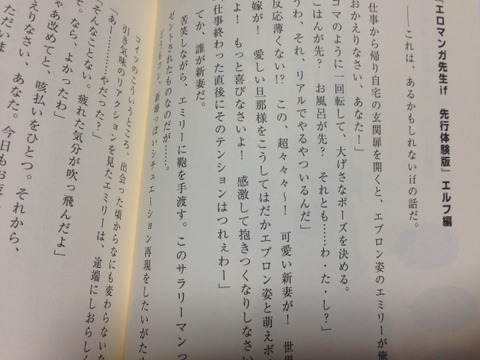 『エロマンガ先生if 先行体験版』エルフ編
――これは、あるかもしれないifの話だ。
仕事から帰り自宅の玄関扉を開くと、エプロン姿のエミリーが俺
おかえりなさい、あなた――！」
コマのように一回転して、大げさなポーズを決める。
ごはんが先？ お風呂が先？ それとも……わ・た・し？」
うわ、それ、リアルでやるやついるんだ」
反応薄くない!? この、超々々～！ 可愛い新妻が！ 世
嫁が！ 愛しい旦那様をこうしてはだかエプロン姿と萌えポ
よ！ もっと喜びなさいよ！ 感激して抱きつくなりしなさい
仕事終わった直後にそのテンションはつれぇわー」
てか、誰が新妻だ。
苦笑しながら、エミリーに鞄を手渡す。このサラリーマンつ
ゼントされたものなのだが……。
どうもコレ、新婚っぽいシチュエーション再現をしたいがた
コイツのこういうところ、出会った頃からなにも変わらない
引き気味のリアクションを見たエミリーは、途端にしおらし
「あー……やだった？」
そんなことない。疲れた気分が吹っ飛んだよ」
そう。なら、よかったわ」
ゃあ改めてと、咳払いをひとつ。それから、
えりなさい、あなた。今日もお
ただいま